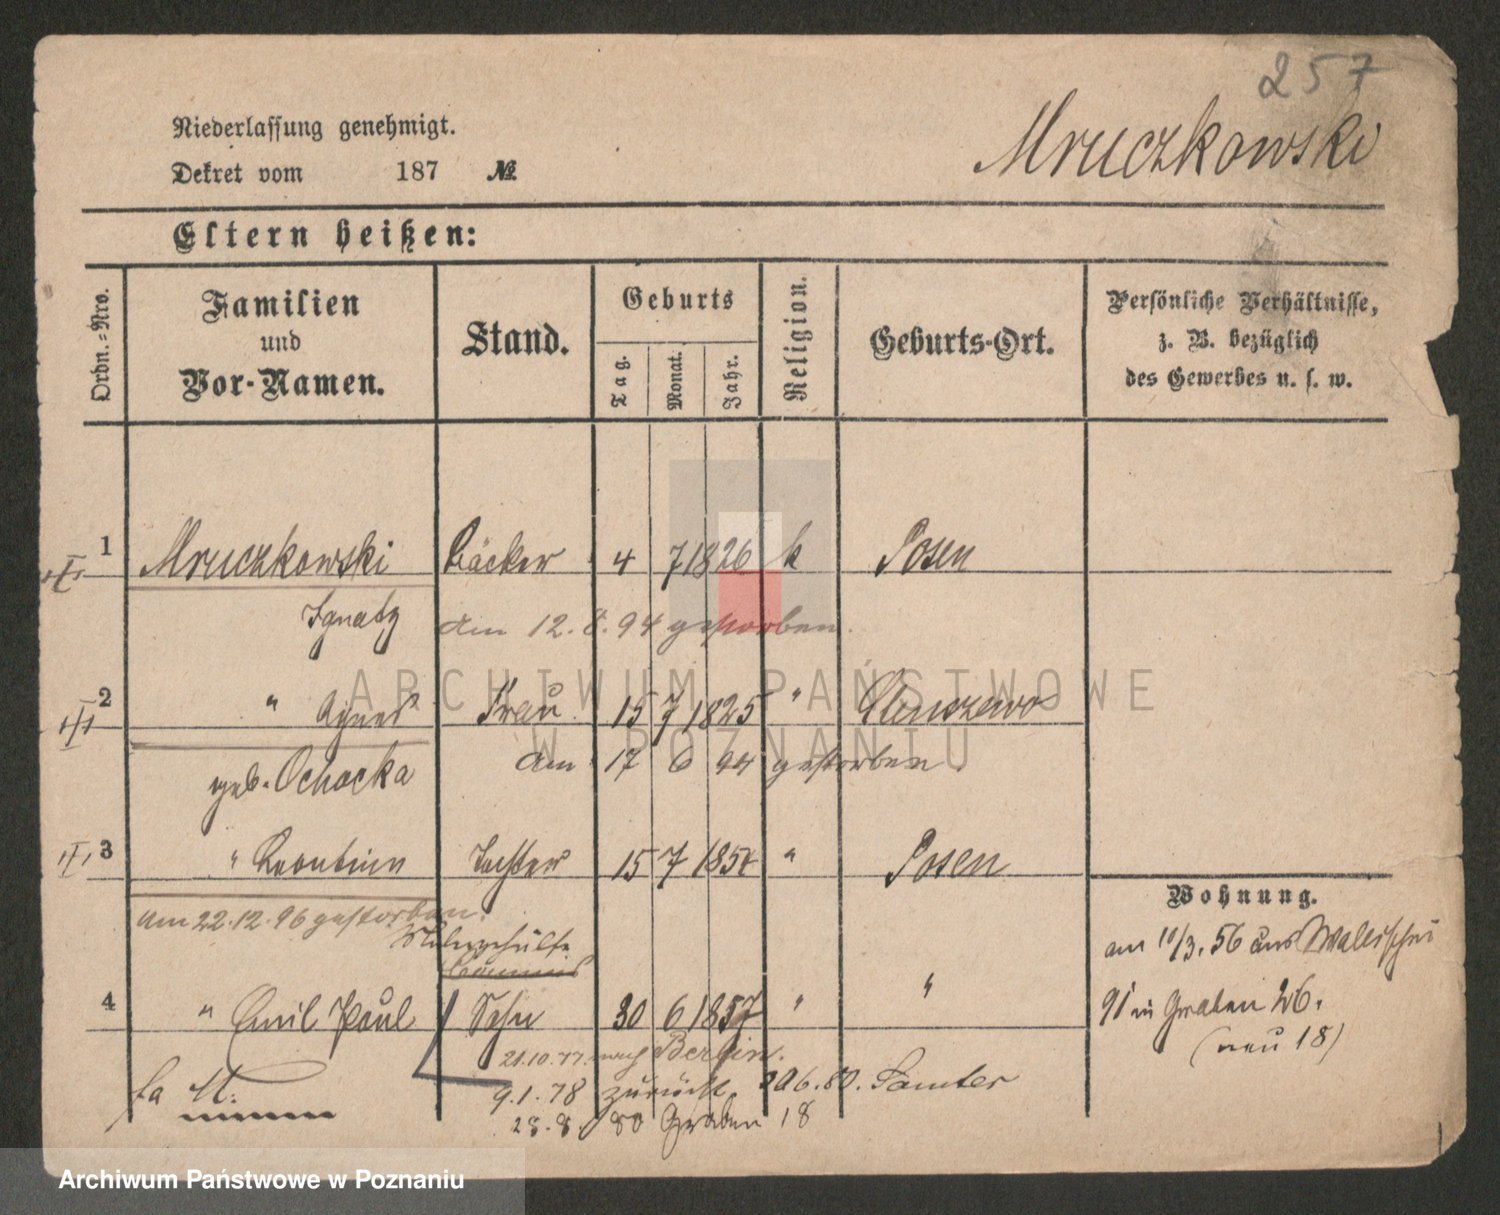 257
Niederlassung genehmigt.
Mruczkowski
Dekret vom 187 №
Eltern heißen:
Ordn.-Nro.
Familien und Vor-Namen.
Stand.
Geburts
Tag. Monat. Jahr.
Religion.
Geburts-Ort.
Persönliche Verhältnisse,
z. B. bezüglich
des Gewerbes u. s. w.
1 Mruczkowski Bäcker 4 7 1826 k Posen
Ignatz am 12.8.94 gestorben.
2 " Agnes Frau 15 7 1825 "
am 17 6 94 gestorben.
geb. Ochocka
3 " Leontine Tochter 15 7 1854 " Posen
Wohnung.
am 22.12.96 gestorben.
am 10/3. 56 aus Wallischei
4 " Emil Paul Sohn 30 6 1857 " "
91 in Graben 26.
(neu 18)
21.10.77. nach Berlin.
9.1.78 zurück. 6.80. Samter
28.8.80 Graben 18
ARCHIWUM PAŃSTWOWE
W POZNANIU
Archiwum Państwowe w Poznaniu